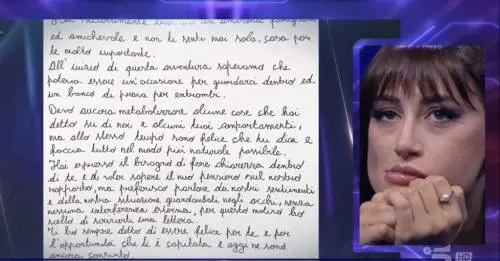 ed amichevole e non ti senti mai sola, cosa per
te molto importante.
All'inizio di questa avventura sapevamo che
poteva essere un'occasione per guardarci dentro ed
un banco di prova per entrambi.
Devo ancora metabolizzare alcune cose che hai
detto su di noi, e alcuni tuoi comportamenti,
ma allo stesso tempo sono felice che tu dica e
faccia tutto nel modo più naturale possibile.
Hai espresso il bisogno di fare chiarezza dentro
di te e di voler sapere il mio pensiero sul nostro
rapporto, ma preferisco parlare dei nostri sentimenti
e della nostra situazione guardandoti negli occhi, senza
nessuna interferenza esterna, per questo motivo ho
scelto di scriverti una lettera.
Ti ho sempre detto di essere felice per te e per
l'opportunità che ti è capitata e oggi ne sono
ancora convinto.
HD